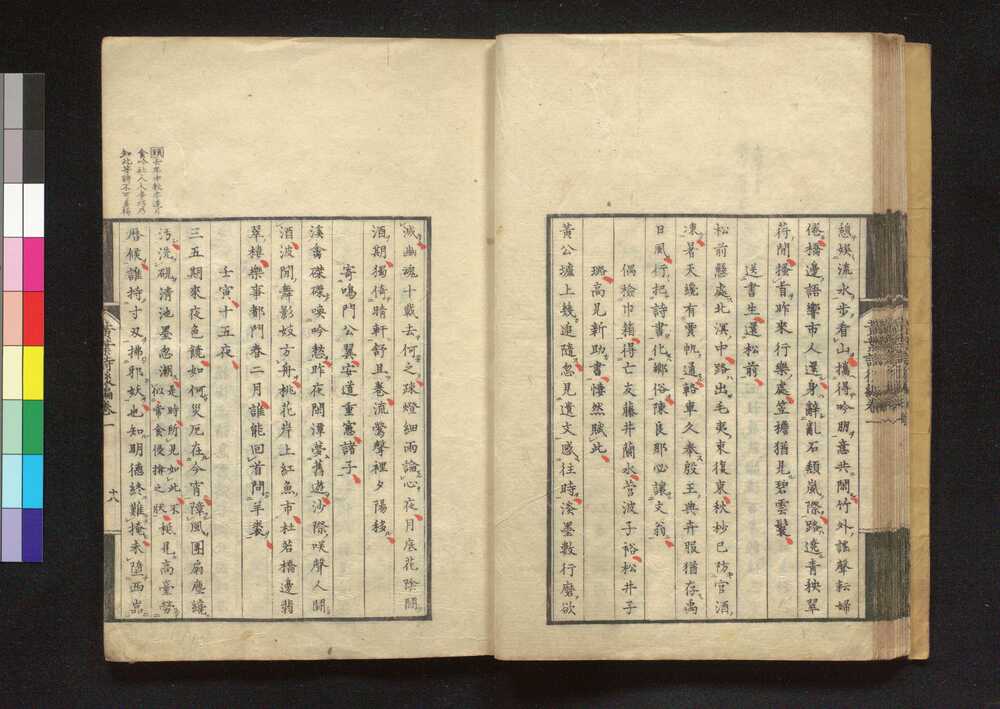 憩娯流水步看山攜得吟朋意共閒竹外謠聲耘婦
倦橋邊語響市人還身辭亂石頹嵐際路遶青秧翠
荷間搔首昨來行樂處笠檐猶見碧雲鬟
送書生還松前
松前懸處北溟中路出毛夷東復東秋杪已防官酒
凍暑天纔有賈帆通輅車久奉殷王典卉服猶存禹
日風行把詩書化鄉俗陳良那必讓文翁
偶檢巾箱得亡友藤井蘭水菅波子裕松井子
璐高見新助書悽然賦此
黃公壚上幾追隨忽見遺文感往時淡墨數行磨欲
滅幽魂十載去何之疎燈細雨論心夜月底花陰鬪
酒期獨倚晴軒舒且卷流鶯聲裡夕陽移
寄鳴門公翼安道重憲諸子
溪禽磔磔喚吟愁昨夜閒潭夢舊遊沙際咲聲人鬪
酒波間舞影妓方舟桃花岸上紅魚市杜若橋邊翡
翠樓樂事都門春二月誰能回首問羊裘
壬寅十五夜
三五期來夜色饒如何災厄在今宵障風團扇塵繞
汚洗硯清池墨忽潮是時所見如此不似常食侵掩之狀祗見高臺勞
曆候誰持寸刃拂邪妖也知明德終難掩未墮西嵓